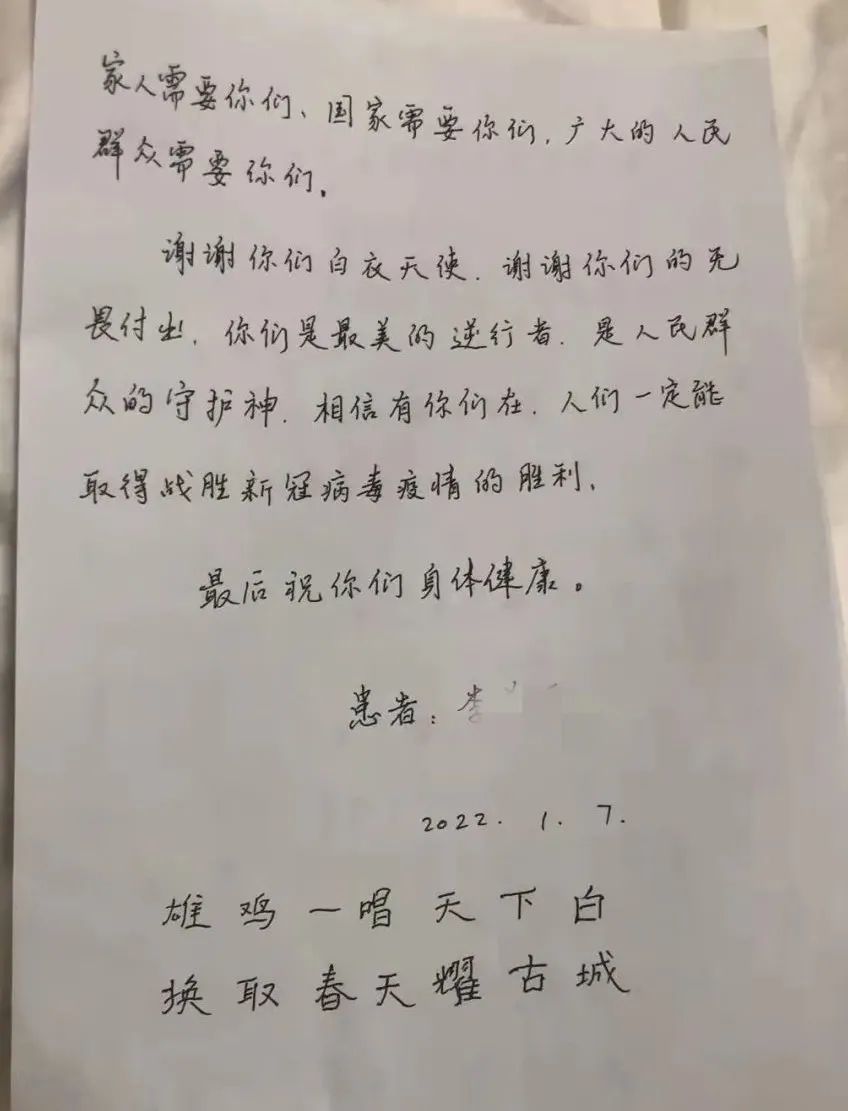 家人需要你们、国家需要你们,广大的人民
群众需要你们。
谢谢你们白衣天使.谢谢你们的无
畏付出,你们是最美的逆行者.是人民群
众的守护神.相信有你们在.人们一定能
取得战胜新冠病毒疫情的胜利、
最后祝你们身体健康。
患者:李
2022.1.7.
雄鸡一唱天下白
换取春天耀古城